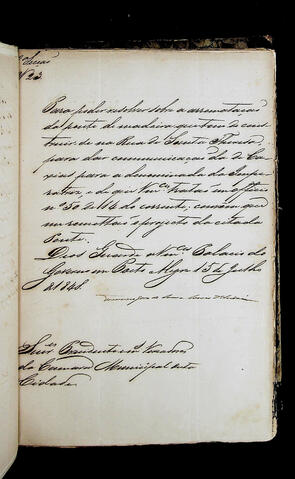 N 23
Para poder resolver sobre a arrematação
da ponte de madeira que tem de cons-
truir-se na Rua de Santa Thereza,
para dar communicação da de Ca-
xias para a denominada da Impe-
ratriz, e de que V.ces tratão em officio
nº 50 de 14 do corrente, convem que
me remettão o projecto da citada
Ponte.
Deos Guarde a V.ces Palacio do
Governo em Porto Alegre 15 de Julho
de 1848.
Snr.es Presidente e Vereadores
da Camara Municipal desta
Cidade.